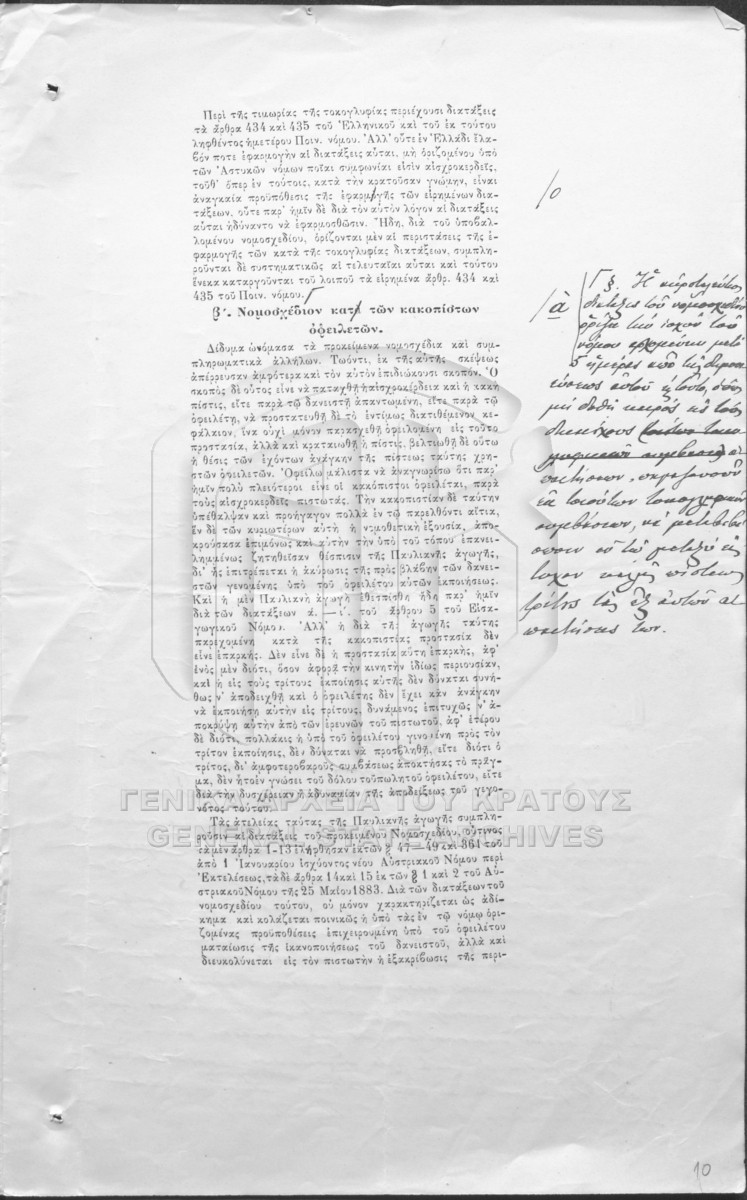 Περὶ τῆς τιμωρίας τῆς τοκογλυφίας περιέχουσι διατάξεις
τὰ ἄρθρα 434 καὶ 435 τοῦ Ἑλληνικοῦ καὶ τοῦ ἐκ τούτου
ληφθέντος ἡμετέρου Ποιν. νόμου. Ἀλλ' οὔτε ἐν Ἑλλάδι ἔλα-
βόν ποτε ἐφαρμογὴν αἱ διατάξεις αὗται, μὴ ὁριζομένου ὑπὸ
τῶν Ἀστυκῶν νόμων ποῖαι συμφωνίαι εἰσὶν αἰσχροκερδεῖς,
τοῦθ' ὅπερ ἐν τούτοις, κατὰ τὴν κρατοῦσαν γνώμην, εἶναι
ἀναγκαία προϋπόθεσις τῆς ἐφαρμογῆς τῶν εἰρημένων δια-
τάξεων, οὔτε παρ' ἡμῖν δὲ διὰ τὸν αὐτὸν λόγον αἱ διατάξεις
αὗται ἠδύναντο νὰ ἐφαρμοσθῶσιν. Ἤδη, διὰ τοῦ ὑποβαλ-
λομένου νομοσχεδίου, ὁρίζονται μὲν αἱ περιστάσεις τῆς ἐ-
φαρμογῆς τῶν κατὰ τῆς τοκογλυφίας διατάξεων, συμπλη-
ροῦνται δὲ συστηματικῶς αἱ τελευταῖαι αὗται καὶ τούτου
ἕνεκα καταργοῦνται τοῦ λοιποῦ τὰ εἰρημένα ἄρθρ. 434 καὶ
435 τοῦ Ποιν. νόμου.
β'. Νομοσχέδιον κατὰ τῶν κακοπίστων
ὀφειλετῶν.
Δίδυμα ὠνόμασα τὰ προκείμενα νομοσχέδια καὶ συμ-
πληρωματικὰ ἀλλήλων. Τωόντι, ἐκ τῆς αὐτῆς σκέψεως
ἀπέρρευσαν ἀμφότερα καὶ τὸν αὐτὸν ἐπιδιώκουσι σκοπόν. Ὁ
σκοπὸς δὲ οὗτος εἶνε νὰ παταχθῇ ἡ αἰσχροκέρδεια καὶ ἡ κακὴ
πίστις, εἴτε παρὰ τῷ δανειστῇ ἀπαντωμένη, εἴτε παρὰ τῷ
ὀφειλέτῃ, νὰ προστατευθῇ δὲ τὸ ἐντίμως διατιθέμενον κε-
φάλαιον, ἵνα οὐχὶ μόνον παρασχεθῇ ὀφειλομένη εἰς τοῦτο
προστασία, ἀλλὰ καὶ κραταιωθῇ ἡ πίστις, βελτιωθῇ δὲ οὕτω
ἡ θέσις τῶν ἐχόντων ἀνάγκην τῆς πίστεως ταύτης χρη-
στῶν ὀφειλετῶν. Ὀφείλω μάλιστα νὰ ἀναγνωρίσω ὅτι παρ'
ἡμῖν πολὺ πλειότεροι εἶνε οἱ κακόπιστοι ὀφειλέται, παρὰ
τοὺς αἰσχροκερδεῖς πιστωτάς. Τὴν κακοπιστίαν δὲ ταύτην
ὑπέθαλψαν καὶ προήγαγον πολλὰ ἐν τῷ παρελθόντι αἴτια,
ἓν δὲ τῶν κυριωτέρων αὐτὴ ἡ νομοθετικὴ ἐξουσία, ἀπο-
κρούσασα ἐπιμόνως καὶ αὐτὴν τὴν ὑπὸ τοῦ τόπου ἐπανει-
λημμένως ζητηθεῖσαν θέσπισιν τῆς Παυλιανῆς ἀγωγῆς,
δι' ἧς ἐπιτρέπεται ἡ ἀκύρωσις τῆς πρὸς βλάβην τῶν δανει-
στῶν γενομένης ὑπὸ τοῦ ὀφειλέτου αὐτῶν ἐκποιήσεως.
Καὶ ἡ μὲν Παυλιανὴ ἀγωγὴ ἐθεσπίσθη ἤδη παρ' ἡμῖν
διὰ τῶν διατάξεων ά. — ί. τοῦ ἄρθρου 5 τοῦ Εἰσα-
γωγικοῦ Νόμου. Ἀλλ' ἡ διὰ τῆς ἀγωγῆς ταύτης
παρεχομένη κατὰ τῆς κακοπιστίας προστασία δὲν
εἶνε ἐπαρκής. Δὲν εἶνε δὲ ἡ προστασία αὕτη ἐπαρκής, ἀφ'
ἑνὸς μὲν διότι, ὅσον ἀφορᾷ τὴν κινητὴν ἰδίως περιουσίαν,
καὶ ἡ εἰς τοὺς τρίτους ἐκποίησις αὐτῆς δὲν δύναται συνή-
θως ν' ἀποδειχθῇ καὶ ὁ ὀφειλέτης δὲν ἔχει κἂν ἀνάγκην
νὰ ἐκποιήσῃ αὐτὴν εἰς τρίτους, δυνάμενος ἐπιτυχῶς ν' ἀ-
ποκρύψῃ αὐτὴν ἀπὸ τῶν ἐρευνῶν τοῦ πιστωτοῦ, ἀφ' ἑτέρου
δὲ διότι, πολλάκις ἡ ὑπὸ τοῦ ὀφειλέτου γινομένη πρὸς τὸν
τρίτον ἐκποίησις, δὲν δύναται νὰ προσβληθῇ, εἴτε διότι ὁ
τρίτος, δι' ἀμφοτεροβαροῦς συμβάσεως ἀποκτήσας τὸ πρᾶγ-
μα, δὲν ἦτο ἐν γνώσει τοῦ δόλου τοῦ πωλητοῦ ὀφειλέτου, εἴτε
διὰ τὴν δυσχέρειαν ἢ ἀδυναμίαν τῆς ἀποδείξεως τοῦ γεγο-
νότος τούτου.
Τὰς ἀτελείας ταύτας τῆς Παυλιανῆς ἀγωγῆς συμπλη-
ροῦσιν αἱ διατάξεις τοῦ προκειμένου Νομοσχεδίου, οὗτινος
τὰ μὲν ἄρθρα 1-13 ἐλήφθησαν ἐκ τῶν § 47—49 καὶ 361 τοῦ
ἀπὸ 1 Ἰανουαρίου ἰσχύοντος νέου Αὐστριακοῦ Νόμου περὶ
Ἐκτελέσεως, τὰ δὲ ἄρθρα 14 καὶ 15 ἐκ τῶν § 1 καὶ 2 τοῦ Αὐ-
στριακοῦ Νόμου τῆς 25 Μαΐου 1883. Διὰ τῶν διατάξεων τοῦ
νομοσχεδίου τούτου, οὐ μόνον χαρακτηρίζεται ὡς ἀδί-
κημα καὶ κολάζεται ποινικῶς ἡ ὑπὸ τὰς ἐν τῷ νόμῳ ὁρι-
ζομένας προϋποθέσεις ἐπιχειρουμένη ὑπὸ τοῦ ὀφειλέτου
ματαίωσις τῆς ἱκανοποιήσεως τοῦ δανειστοῦ, ἀλλὰ καὶ
διευκολύνεται εἰς τὸν πιστωτὴν ἡ ἐξακρίβωσις τῆς περι-
/ο
/ὰ
§. Ἡ ἀκροτελεύτιος
διάταξις τοῦ νομοσχεδίου
ὁρίζει τὴν ἰσχὺν τοῦ
νόμου ἀρχομένην μετὰ
5 ἡμέρας ἀπὸ τῆς δημοσι-
εύσεως αὐτοῦ
μὴ δοθῇ καιρὸς εἰς τοὺς
τοιούτων τοκογλυφικῶν
συμβάσεων, νὰ μεταβιβά-
σωσιν
καλῆς πίστεως
τρίτους τὰς ἐξ αὐτῶν ἀπ
αιτήσεις των.
ΓΕΝΙΚΑ ΑΡΧΕΙΑ ΤΟΥ ΚΡΑΤΟΥΣ
GENERAL STATE ARCHIVES
10